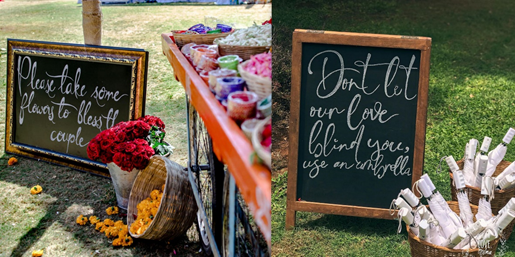 Please take some
flowers to bless the
couple
Don't let
our love
blind you,
use an umbrella